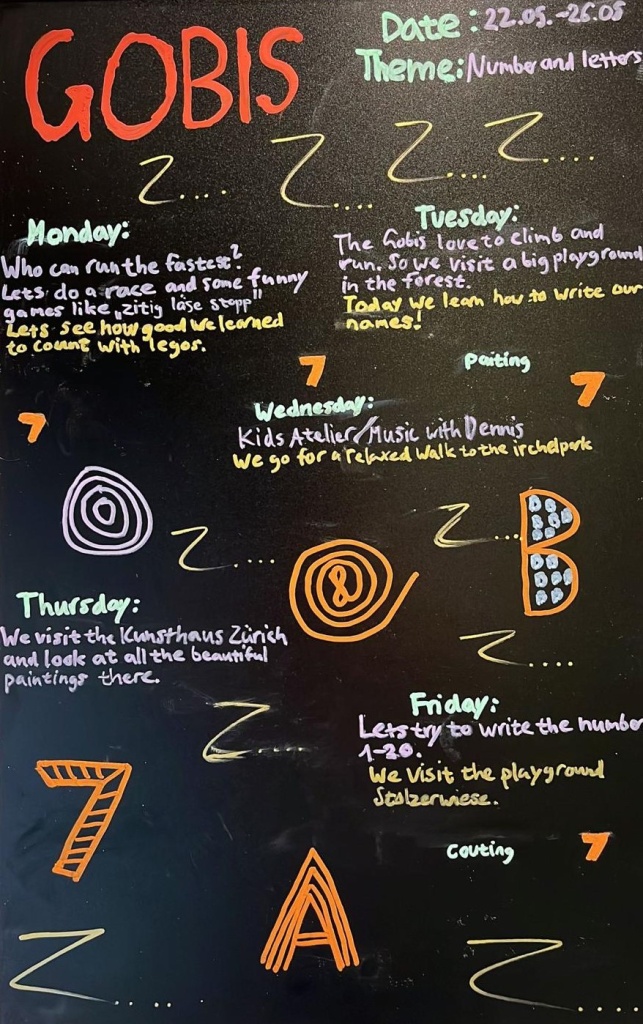 GOBIS
Date: 22.05.-26.05
Theme: Number and letters
Z....
Z....
Z....
Z....
Monday:
Who can run the fastest?
Lets do a race and some funny
games like „zitig läse stopp"
Lets see how good we learned
to count with legos.
Tuesday:
The Gobis love to climb and
run. So we visit a big playground
in the forest.
Today we learn how to write our
names!
7
Paiting
7
7
Wednesday:
Kids Atelier/Music with Dennis
We go for a relaxed walk to the irchelpark
Z....
Z....
B
8
Z....
Thursday:
We visit the Kunsthaus Zürich
and look at all the beautiful
paintings there.
Z....
Friday:
Lets try to write the number
1-20.
We visit the playground
Stolzerwiese.
7
Couting
7
A
Z....
Z....